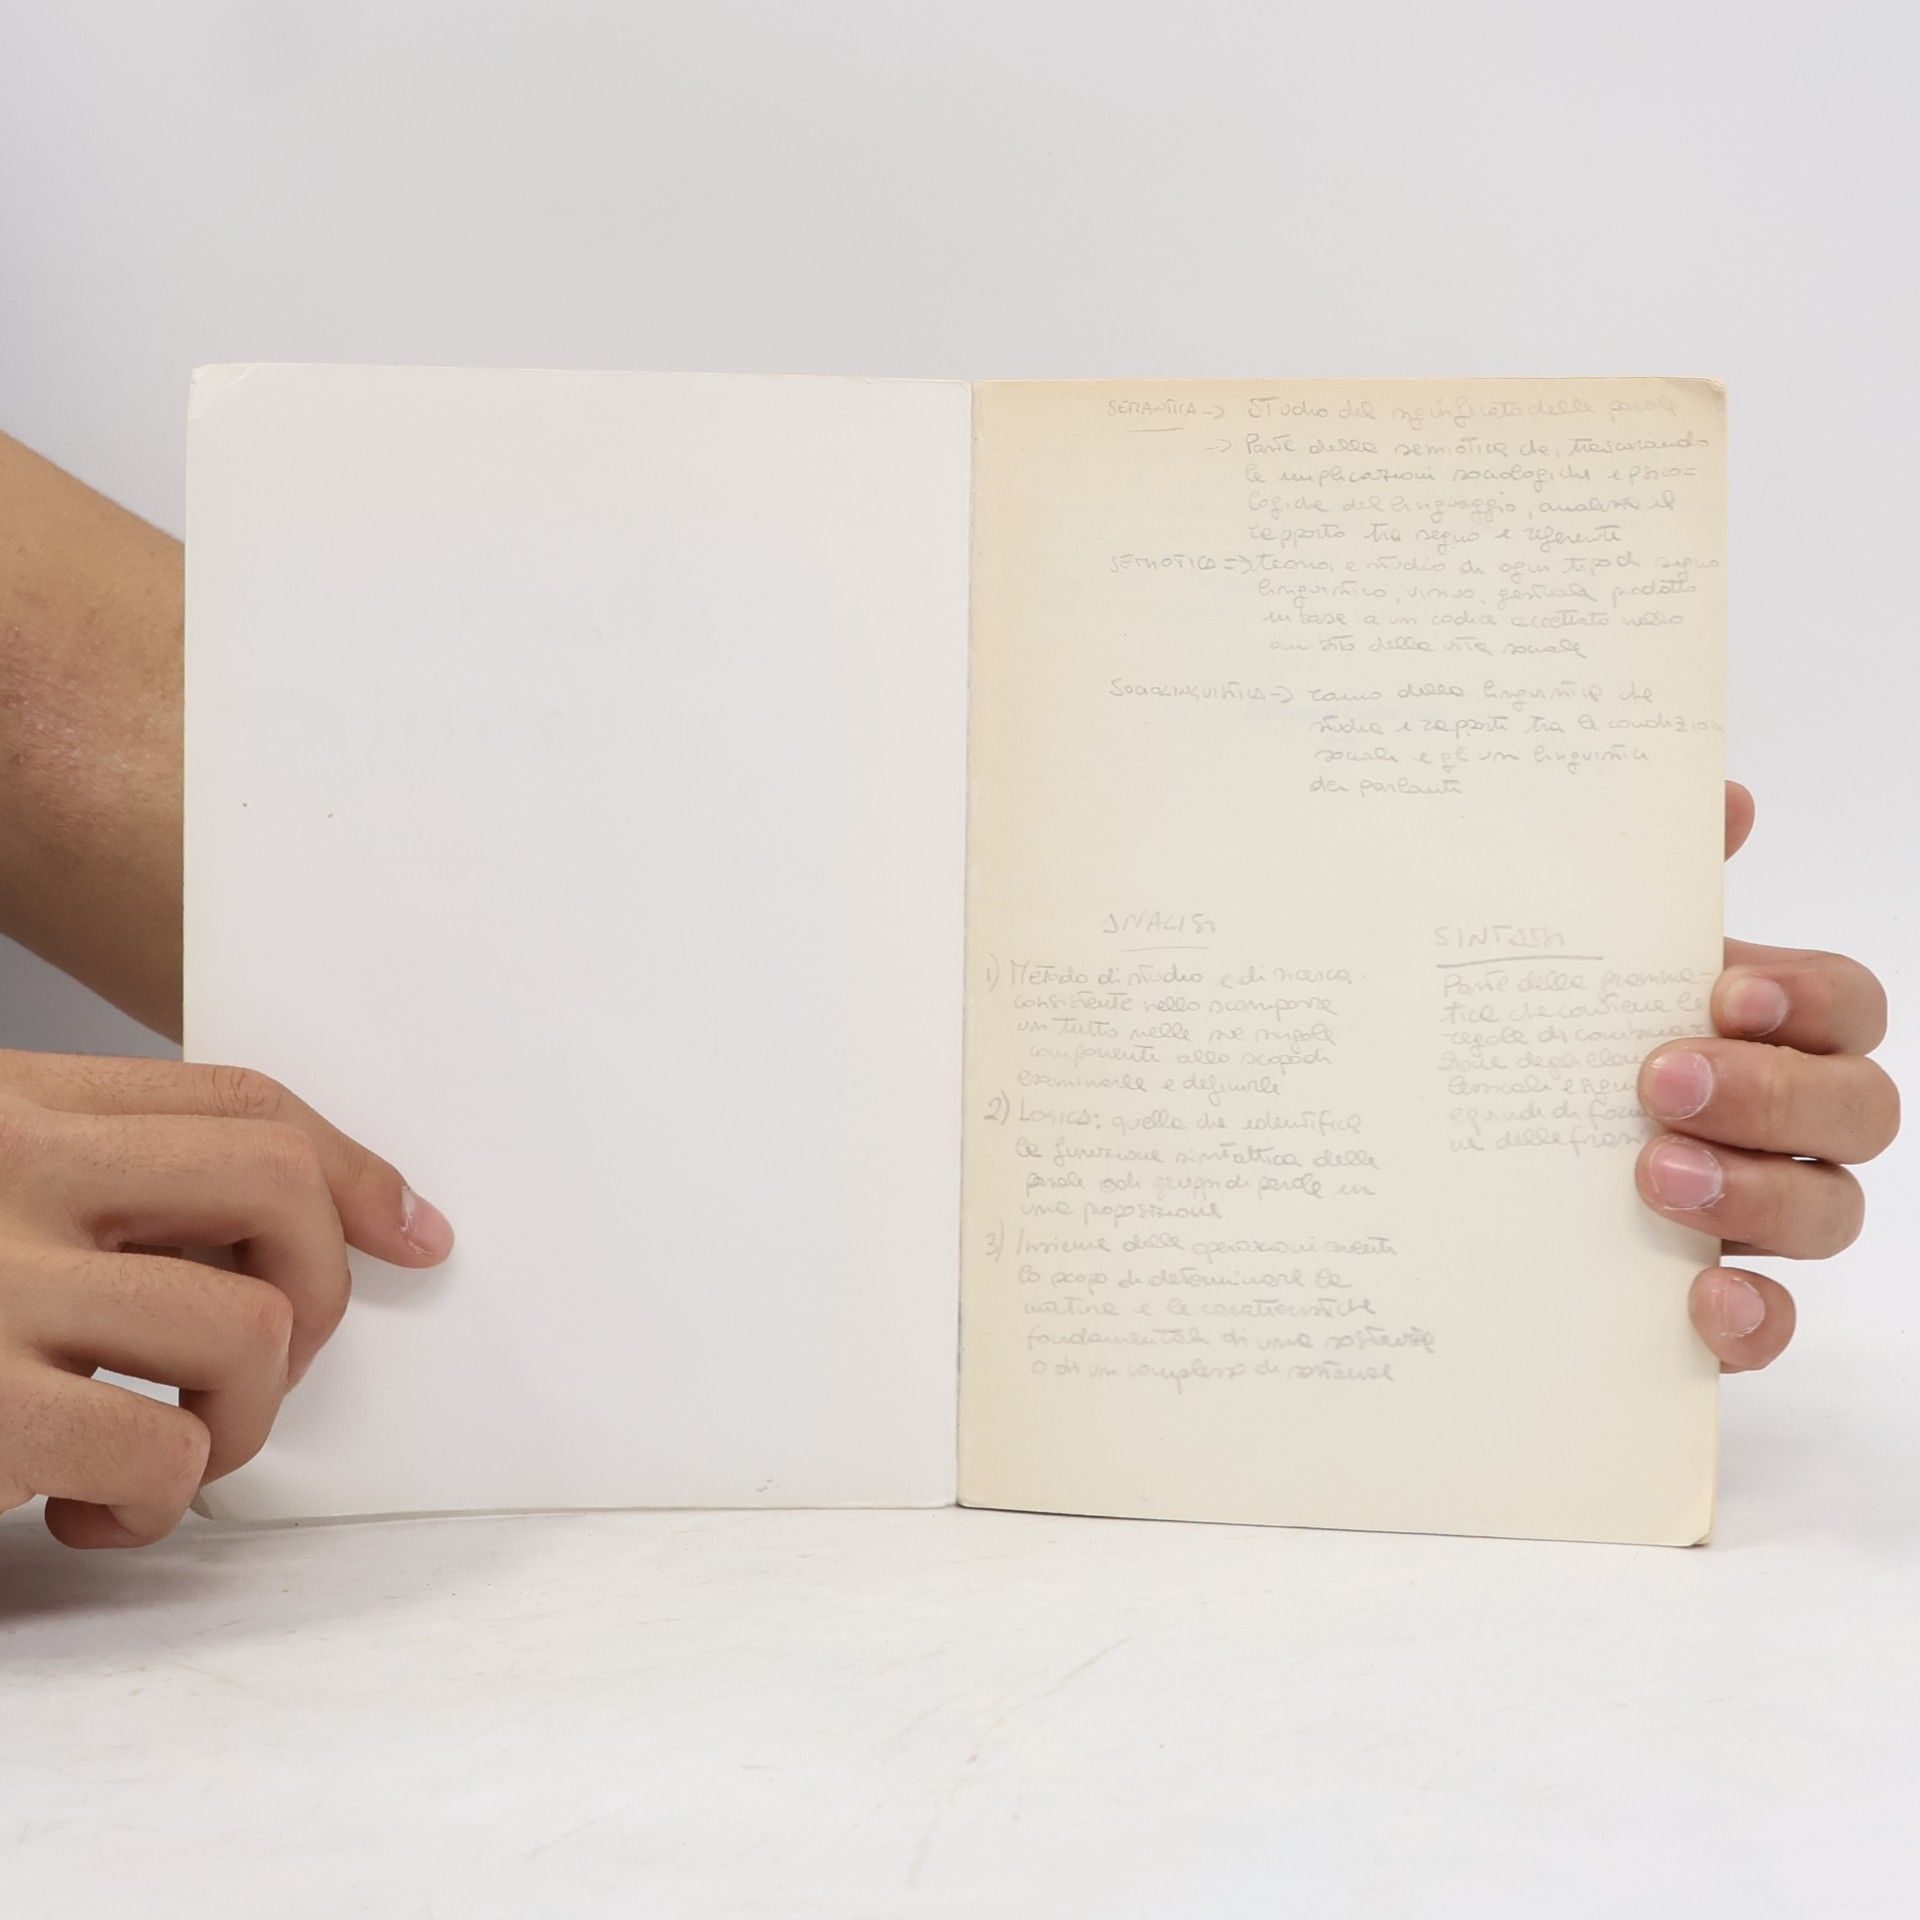 SEMANTICA -> Studio del significato delle parole
-> Parte della semiotica che, trascurando
le implicazioni sociologiche e psico=
logiche del linguaggio, analizza il
rapporto tra segno e referente
SEMIOTICA => teoria e studio di ogni tipo di segno
linguistico, visivo, gestuale prodotto
in base a un codice accettato nello
ambito della vita sociale
SOCIOLINGUISTICA -> ramo della linguistica che
studia i rapporti tra le condizioni
sociali e gli usi linguistici
dei parlanti
ANALISI
1) Metodo di studio e di ricerca
consistente nello scomporre
un tutto nelle sue singole
componenti allo scopo di
esaminarle e definirle
2) LOGICA: quella che identifica
la funzione sintattica delle
parole o di gruppi di parole in
una proposizione
3) Insieme delle operazioni aventi
lo scopo di determinare la
natura e le caratteristiche
fondamentali di una sostanza
o di un complesso di sostanze
SINTASSI
Parte della gramma-
tica che contiene le
regole di combina
zione degli elem
lessicali e
e quindi di
delle frasi